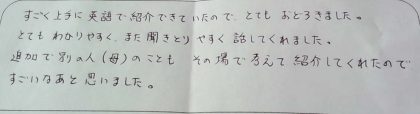 すごく上手に英語で紹介できていたので、とてもおどろきました。
とてもわかりやすく、また聞きとりやすく話してくれました。
追加で別の人(母)のことも その場で考えて紹介してくれたので
すごいなあと思いました。